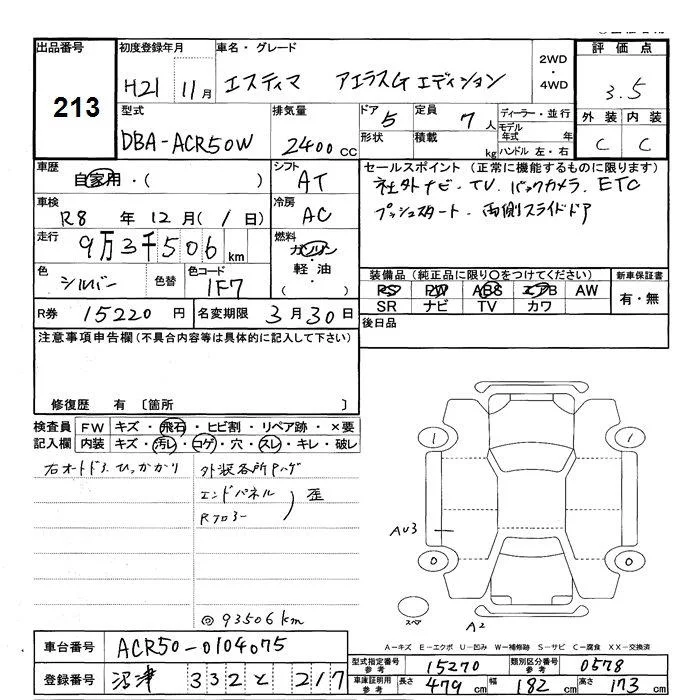 出品番号 初度登録年月 車名・グレード 2WD・4WD 評価点
213 H21 11月 エスティマ アエラスG エディション 3.5
型式 排気量 ドア 5 定員 7人 ディーラー・並行 外装 内装
DBA-ACR50W 2400cc 形状 積載 kg モデル年式 年 ハンドル 左・右 C C
車歴 シフト セールスポイント (正常に機能するものに限ります)
自家用・( ) AT 社外ナビ・TV バックカメラ ETC
車検 冷房 プッシュスタート・両側スライドドア
R8年 12月 (1日) AC
走行 9万3千506km 燃料 ガソリン・軽油・( )
色 シルバー 色替 色コード 1F7 装備品 (純正品に限り○をつけてください) 新車保証書
PS PW ABS エアB AW 有・無
SR ナビ TV カワ
R券 15220円 名変期限 3月30日 後日品
注意事項申告欄 (不具合内容等は具体的に記入して下さい)
修復歴 有 〔箇所 〕
検査員 FW キズ・飛石・ヒビ割・リペア跡・×要
記入欄 内装 キズ・汚レ・コゲ・穴・スレ・キレ・破レ
右オートドア ひっかかり 外装各所Pハゲ
エンドパネル
Rフロアー ) 歪
◎93506km
1 1
AU3
0 0
スペア A2
A-キズ E-エクボ U-凹み W-補修跡 S-サビ C-腐食 XX-交換済
車台番号 ACR50-0104075
型式指定番号 参考 15270 類別区分番号 参考 0578
登録番号 沼津 332 と 217
車庫証明用 参考 長さ 479cm 幅 182cm 高さ 173cm